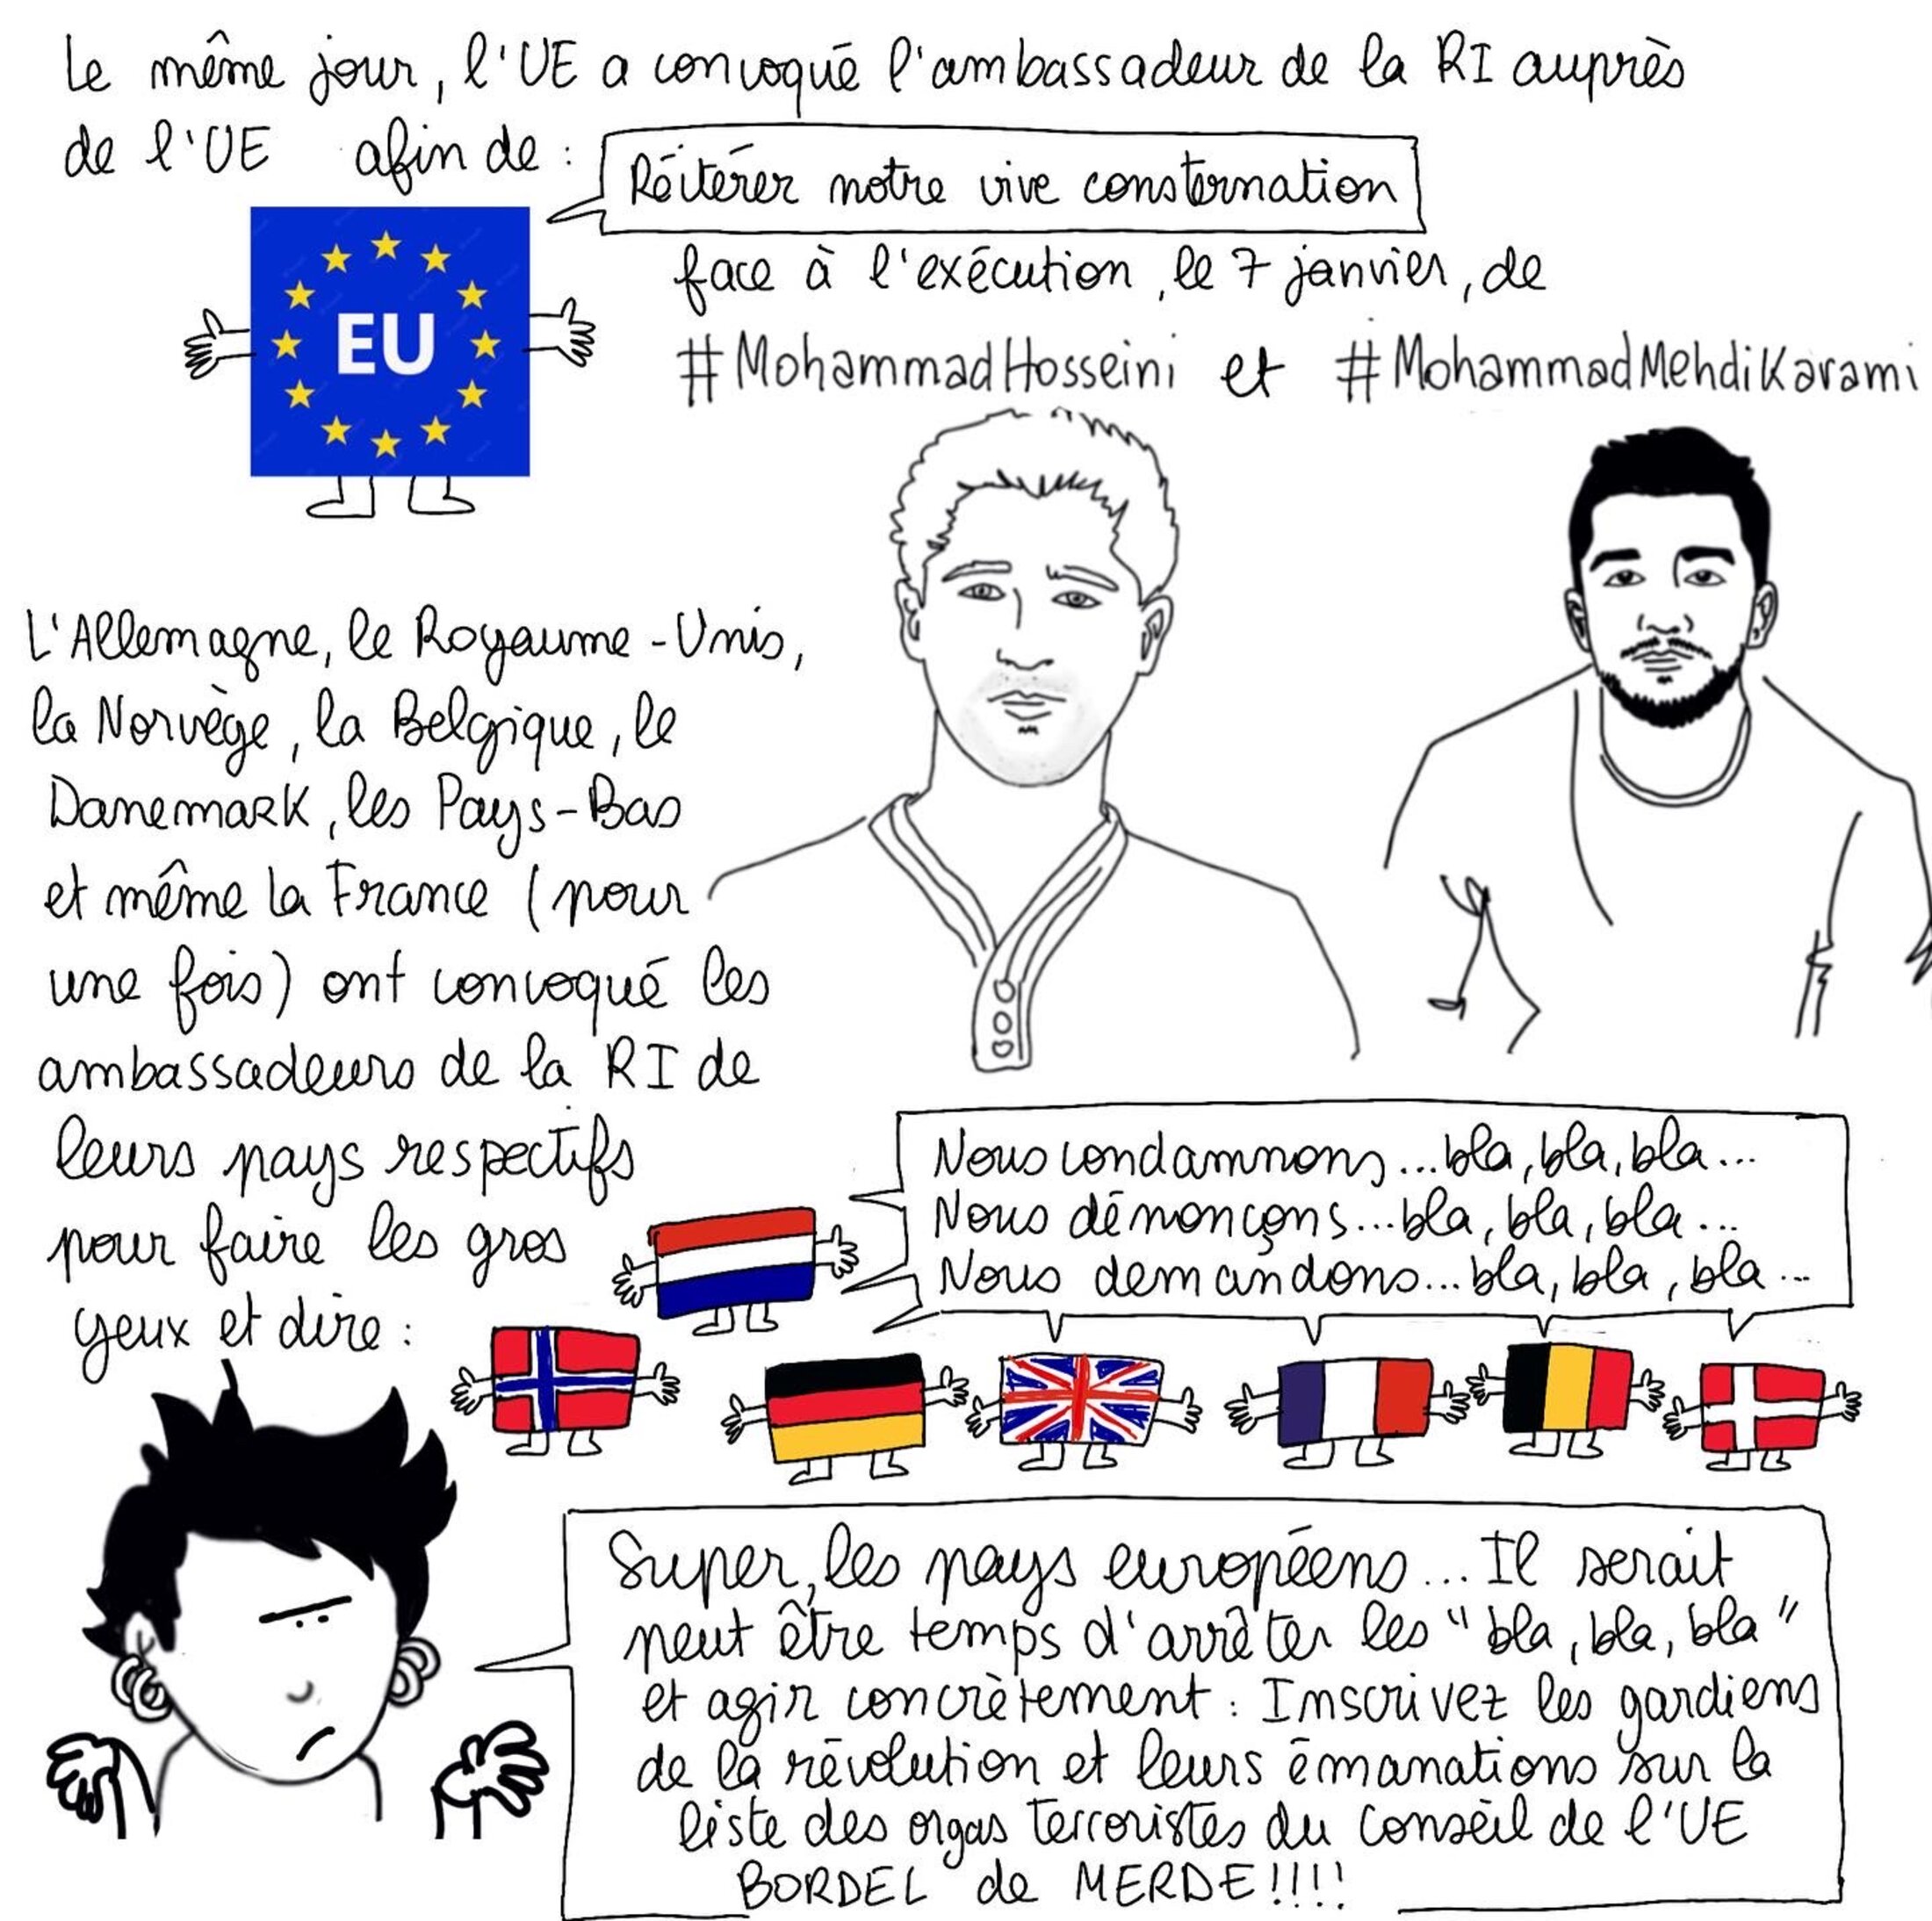 Le même jour, l'UE a convoqué l'ambassadeur de la RI auprès
de l'UE afin de :
Réitérer notre vive consternation
face à l'exécution, le 7 janvier, de
#MohammadHosseini et #MohammadMehdiKarami
EU
L'Allemagne, le Royaume-Unis,
la Norvège, la Belgique, le
Danemark, les Pays-Bas
et même la France (pour
une fois) ont convoqué les
ambassadeurs de la RI de
leurs pays respectifs
pour faire les gros
yeux et dire :
Nous condamnons...bla, bla, bla...
Nous dénonçons...bla, bla, bla...
Nous demandons...bla, bla, bla...
Super, les pays européens... Il serait
peut être temps d'arrêter les "bla, bla, bla"
et agir concrètement : Inscrivez les gardiens
de la révolution et leurs émanations sur la
liste des orgas terroristes du Conseil de l'UE
BORDEL de MERDE!!!!